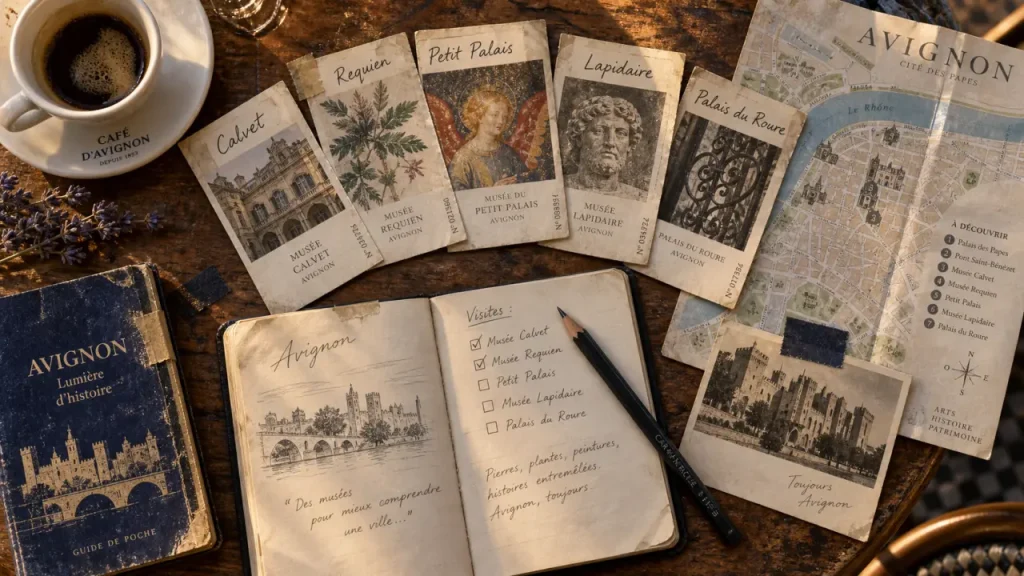 CAFÉ
D'AVIGNON
DEPUIS 1803
Calvet
MUSÉE
CALVET
AVIGNON
Requien
MUSÉE
REQUIEN
AVIGNON
Petit Palais
MUSÉE DU
PETIT PALAIS
AVIGNON
Lapidaire
MUSÉE
LAPIDAIRE
AVIGNON
Palais du Roure
PALAIS DU ROURE
AVIGNON
AVIGNON
CITÉ DES PAPES
Le Rhône
À DÉCOUVRIR
1 Palais des Papes
2 Pont Saint-Bénézet
3 Musée Calvet
4 Musée Requien
5 Petit Palais
6 Musée Lapidaire
7 Palais du Roure
N
O E
S
ARTS
HISTOIRE
PATRIMOINE
AVIGNON
Lumière
d'histoire
GUIDE DE POCHE
Avignon
" Des musées
pour mieux comprendre
une ville... "
Visites :
Musée Calvet
Musée Requien
Petit Palais
Musée Lapidaire
Palais du Roure
Pierres, plantes, peintures,
histoires entremêlées.
Avignon, toujours.
Toujours
Avignon